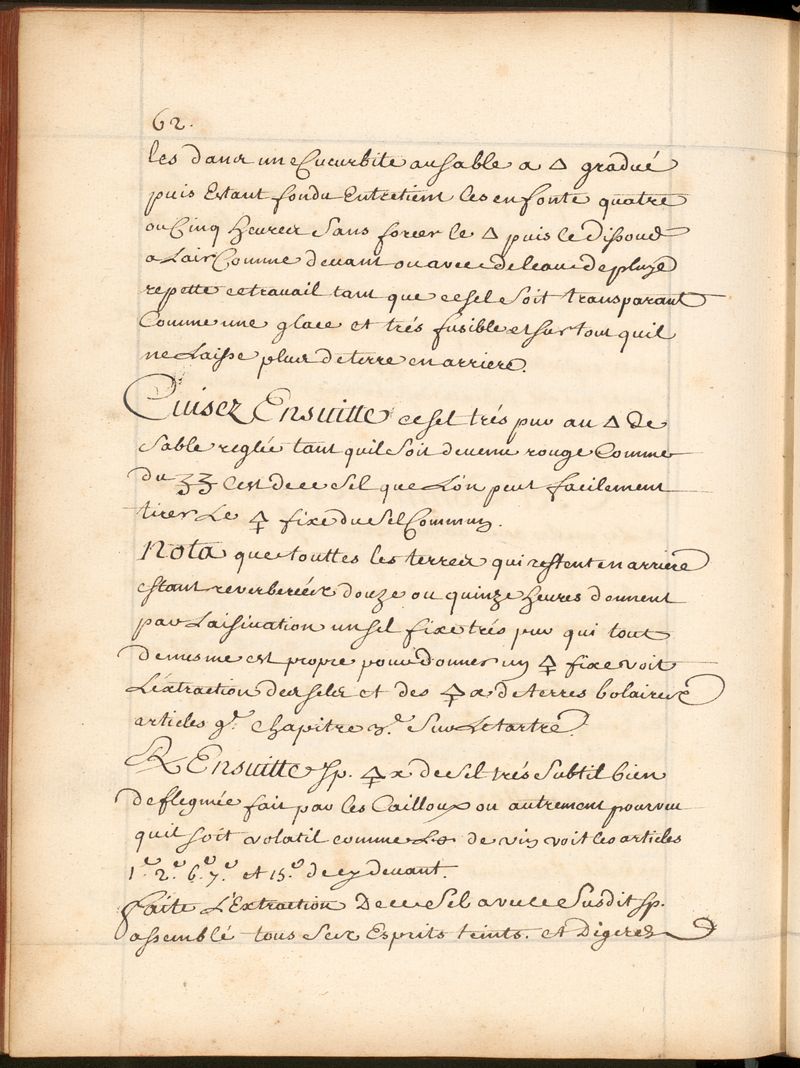 62.
les dans une Cucurbite au sable a 🜂 gradué
puis Estant fondu Entretient les en fonte quatre
ou Cinq Heures Sans forcer le 🜂 puis le Dissoud
a Lair Comme devant ou avec de leau de pluye
repette ce travail tant que ce sel soit transparant
Comme une glace et trés fusible et sur tout quil
ne Laisse plus de terre en arriere.
Cuisez Ensuitte ce sel trés pur au 🜂 De
Sable reglée tant quil soit devenu rouge Comme
du ʒʒ Cest de ce Sel que L'on peut facilement
tirer Le 🜍 fixe du Sel Commun.
Nota que touttes les terres qui restent en arriere
estant reverbereéx douze ou quinze Heures donnent
par Laisivation un sel fixe trés pur qui tout
de mesme est propre pour donner un 🜍 fixe voit
L'éxtraction des sels et des 🜍 x de terres bolaires
articles 9.e Chapitre 3.e Sur Le tartre.
℞ Ensuitte sp. 🜍 x de sel trés Subtil bien
deflegmée fait par les Cailloux ou autrement pourveu
quil soit volatil comme de vin voit les articles
1.e 2.e 6.e 7.e et 15.e de cy devant.
faite L'Extraction De ce Sel avec le Susdit sp.
assemblé tous Sex Esprits teints. et Digerez